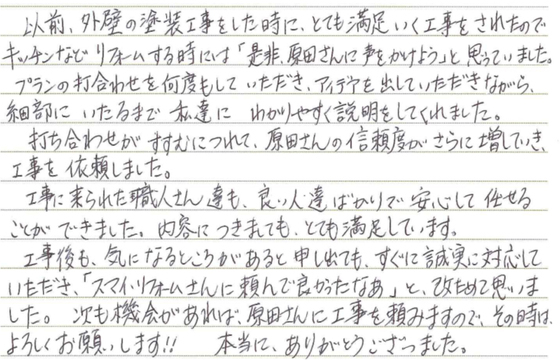 以前、外壁の塗装工事をした時に、とても満足いく工事をされたので
キッチンなどリフォームする時には「是非、原田さんに声をかけよう」と思っていました。
プランの打合わせを何度もしていただき、アイデアを出していただきながら、
細部にいたるまで私達にわかりやすく説明をしてくれました。
打ち合わせがすすむにつれて、原田さんの信頼度がさらに増していき、
工事を依頼しました。
工事に来られた職人さん達も、良い人達ばかりで安心して任せる
ことができました。内容につきましても、とても満足しています。
工事後も、気になるところがあると申し出ても、すぐに誠実に対応して
いただき、「スマイ・リフォームさんに頼んで良かったなあ」と、改ためて思いま
した。次も機会があれば、原田さんに工事を頼みますので、その時は、
よろしくお願いします!! 本当に、ありがとうございました。